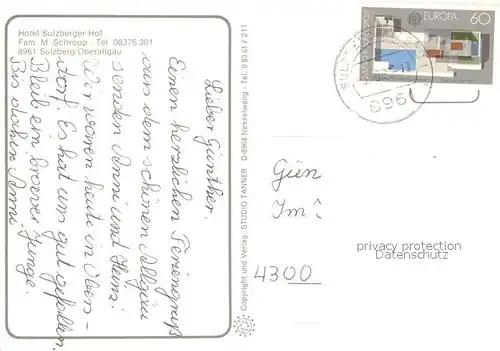 Hotel Sulzberger Hof
Fam. M. Schropp · Tel. 08376:301
8961 Sulzberg Oberallgäu
Lieber Günther.
Einen herzlichen Feriengruß
aus dem schönen Allgäu
senden Anni und Heinz.
Wir waren heute in Obers-
dorf. Es hat uns gut gefallen,
Bleib ein braver Junge.
Bis dahin Anni.
Copyright und Verlag: STUDIO TANNER D-8964 Nesselwang - Tel. 0 83 61 / 211
EUROPA 60
896
Im
4300
privacy protection
Datenschutz